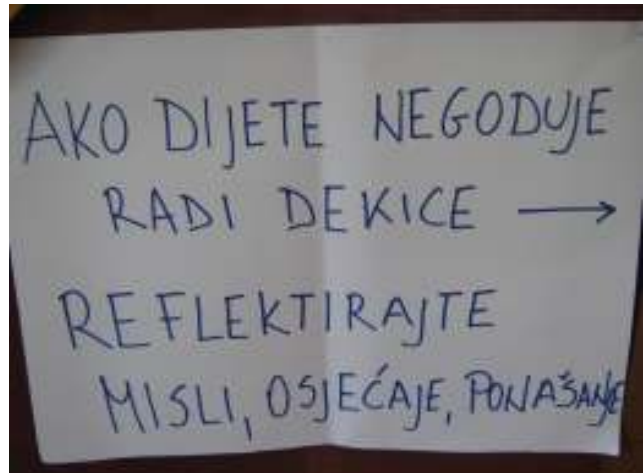 AKO DIJETE NEGODUJE
RADI DEKICE →
REFLEKTIRAJTE
MISLI, OSJEĆAJE, PONAŠANJE